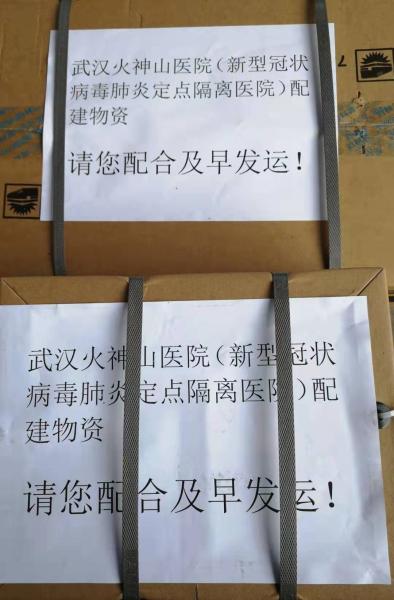 武汉火神山医院(新型冠状
病毒肺炎定点隔离医院)配
建物资
请您配合及早发运!
武汉火神山医院(新型冠状
病毒肺炎定点隔离医院)配
建物资
请您配合及早发运!